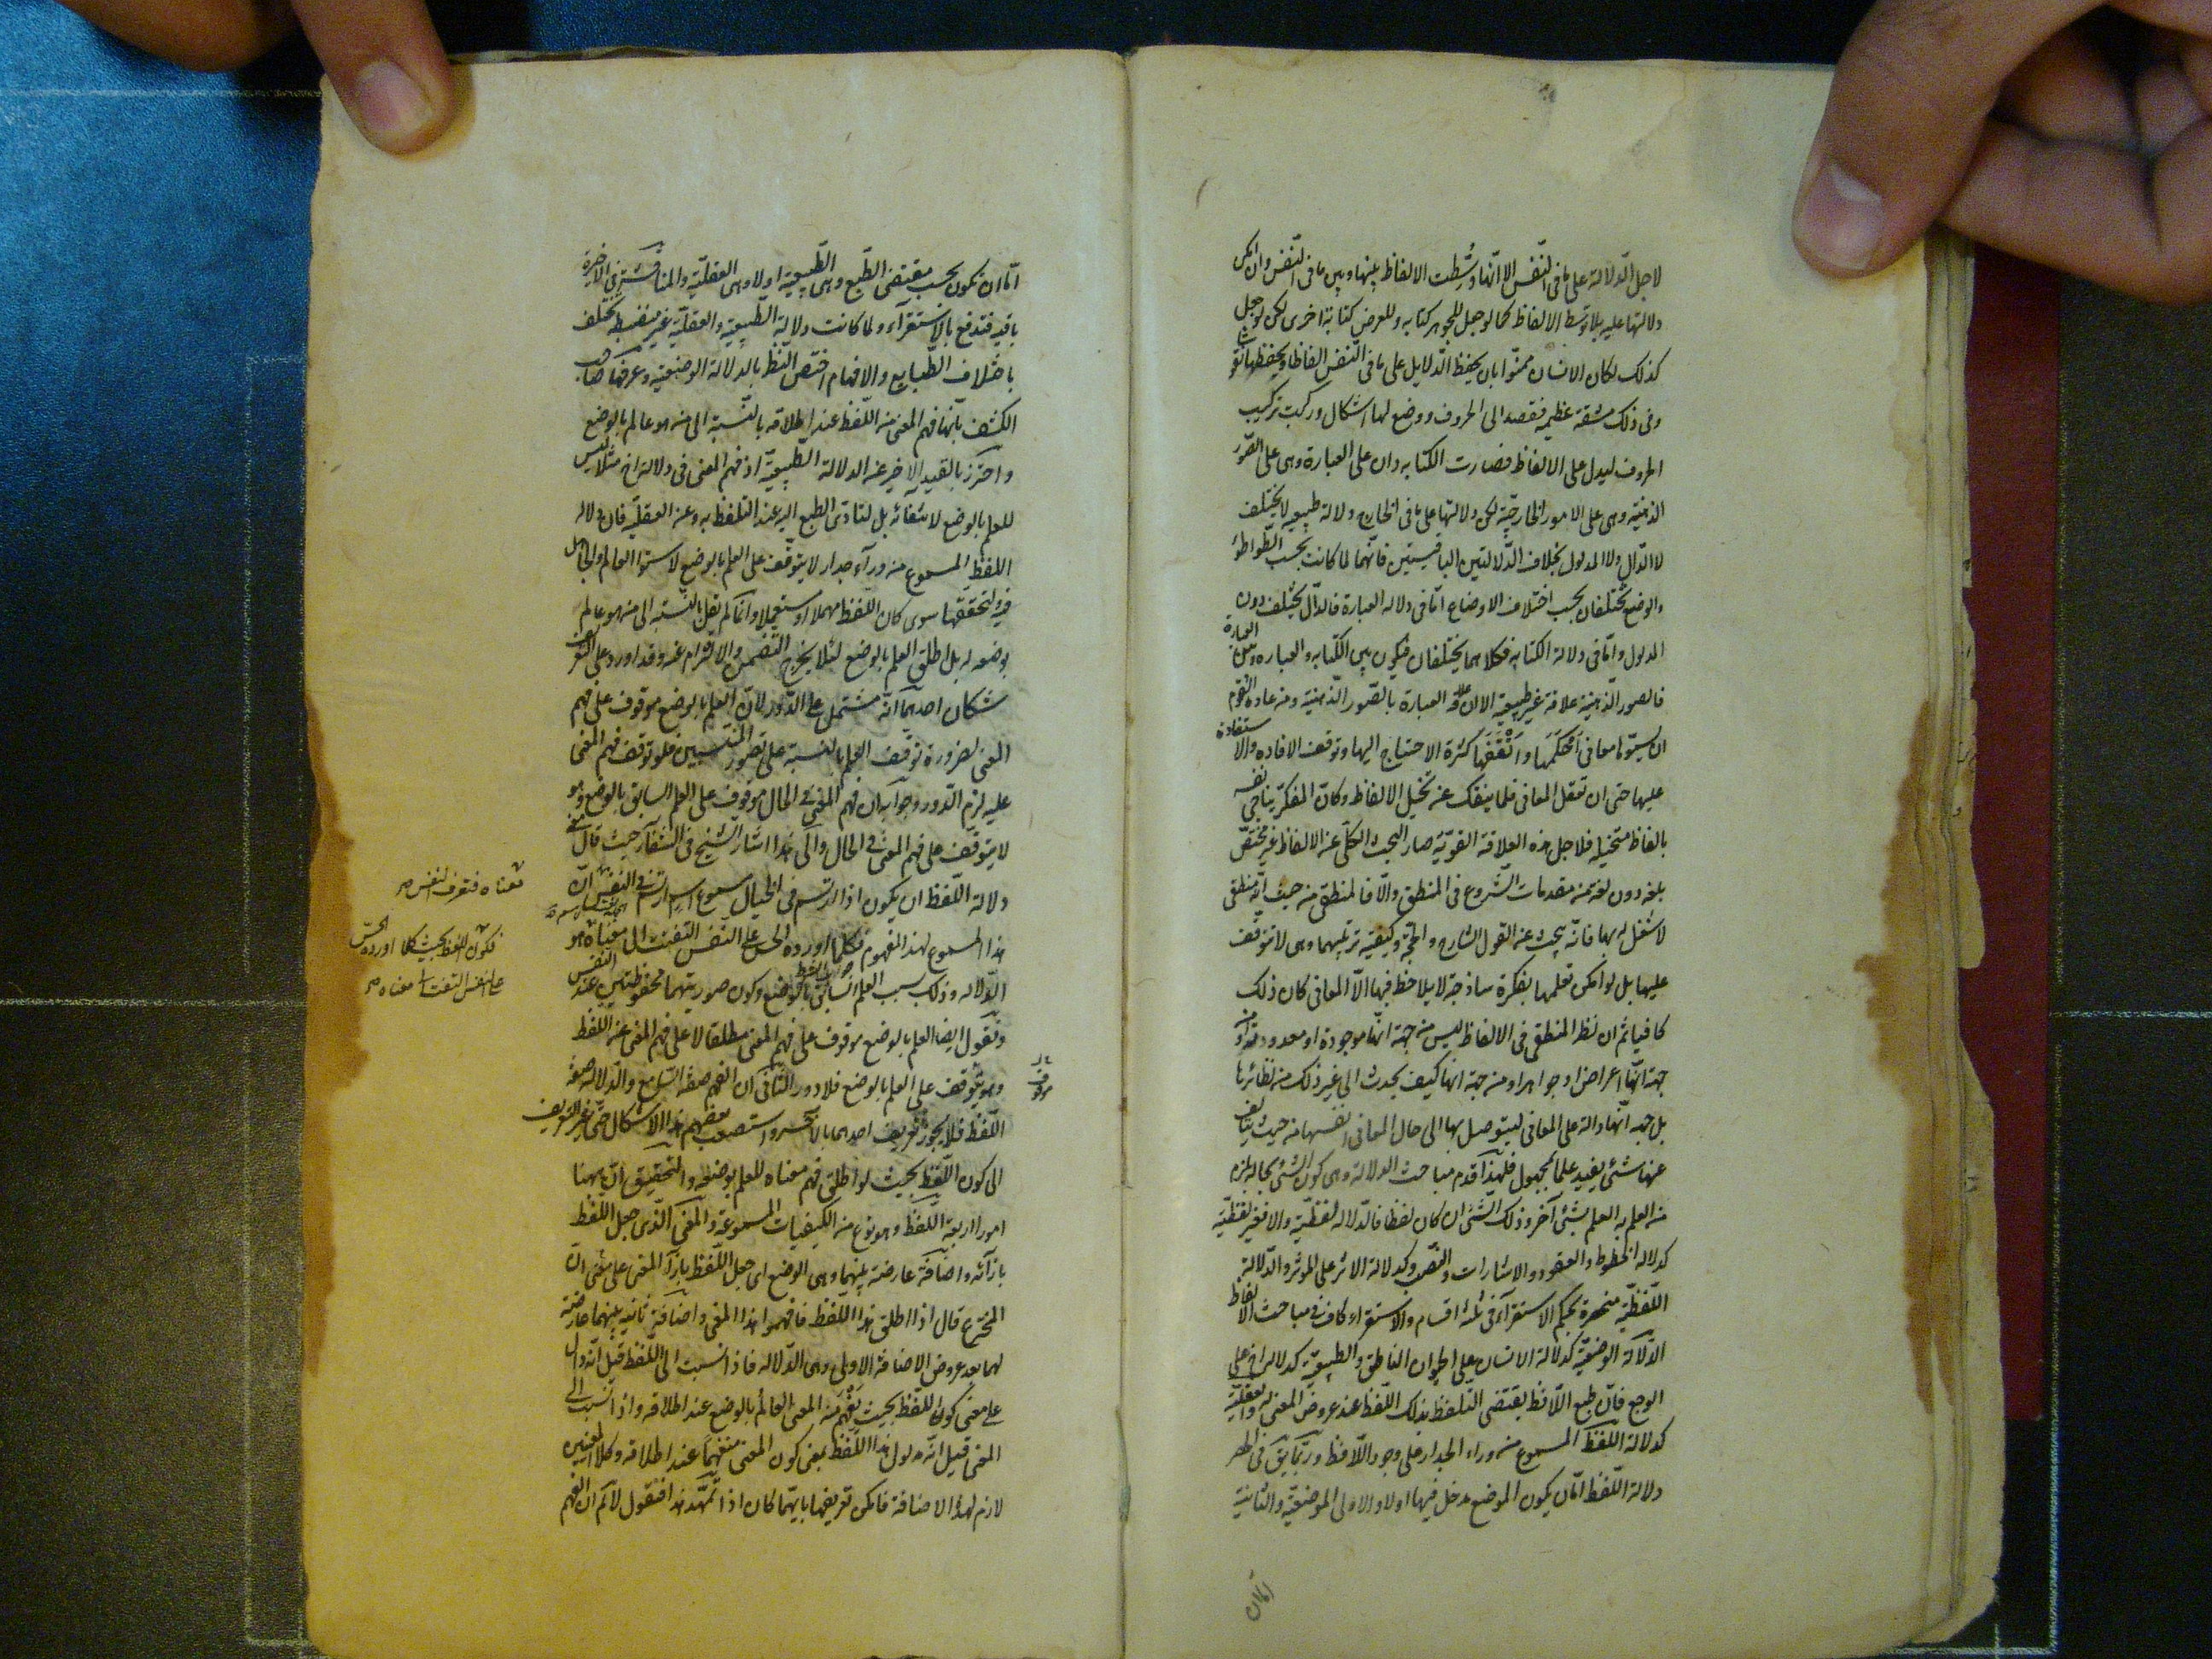 لاجل الدلالة على ما فى النفس الا انها وسطت الالفاظ بينها وبين ما فى النفس وان امكن
دلالتها عليه بلا توسط الالفاظ كما لو جعل للجوهر كتابة وللعرض كتابة اخرى لكن لو جعل
كذلك لكان الانسان ممنوا بان يحفظ الدلايل على ما فى النفس الفاظا ويحفظها نقوشا
وفى ذلك مشقة عظيمة فقصد الى الحروف ووضع لها اشكال وركبت تركيب
الحروف ليدل على الالفاظ فصارت الكتابة دالة على العبارة وهى على الصور
الذهنية وهى على الامور الخارجية لكن دلالتها على ما فى الخارج دلالة طبيعية لا يختلف
لا الدال ولا المدلول بخلاف الدلالتين الباقيتين فانهما لما كانت بحسب التواطؤ
والوضع تختلفان بحسب اختلاف الاوضاع اما فى دلالة العبارة فالدال يختلف دون
المدلول واما فى دلالة الكتابة فكلاهما يختلفان فيكون بين الكتابة والعبارة وبين العبارة
فالصور الذهنية علاقة غير طبيعية الا ان علاقة العبارة بالصور الذهنية ومن عادة القوم
ان يسموها معانى احكمها واتقنها كثرة الاحتياج اليها وتوقف الافادة والاستفادة
عليها حتى ان تعقل المعانى قلما ينفك عن تخيل الالفاظ وكان المفكر يناجى نفسه
بالفاظ متخيلة فلاجل هذه العلاقة القوية صار البحث الكلى عن الالفاظ غير مختص
بلغة دون لغة من مقدمات الشروع فى المنطق والا فالمنطقى من حيث انه منطقى
لا شغل له بها فانه يبحث عن القول الشارح والحجة وكيفية ترتيبهما وهى لا تتوقف
عليها بل لو امكن تعلمها بفكرة ساذجة لا يلاحظ فيها الا المعانى كان ذلك
كافيا ثم ان نظر المنطقى فى الالفاظ ليس من جهة انها موجودة او معدودة او من
جهة انها اعراض او جواهر او من جهة انها كيف يحدث الى غير ذلك من نظائرها
بل جهة انها دالة على المعانى ليتوصل بها الى حال المعانى انفسها من حيث يتألف
عنها شئ يفيد علما بمجهول فلهذا قدم مباحث الدلالة وهى كون الشئ بحالة يلزم
من العلم به العلم بشئ آخر وذلك الشئ ان كان لفظا فالدلالة لفظية والا فغير لفظية
كدلالة الخطوط والعقود والاشارات والنصب وكدلالة الاثر على المؤثر والدلالة
اللفظية منحصرة بحكم الاستقراء فى ثلثة اقسام والاستقراء كاف فى مباحث الالفاظ
الدلالة الوضعية كدلالة الانسان على الحيوان الناطق والطبيعية كدلالة اخ على
الوجع فان طبع اللافظ يقتضى التلفظ بذلك اللفظ عند عروض المعنى له والعقلية
كدلالة اللفظ المسموع من وراء الجدار على وجود اللافظ وربما يق فى الحصر
دلالة اللفظ اما ان يكون للوضع مدخل فيها اولا والاولى الوضعية والثانية
اما ان
اما ان تكون بحسب مقتضى الطبع وهى الطبيعية اولا وهى العقلية والمناقشة فى الاخيرة
باقية فتدفع بالاستقراء ولما كانت دلالة الطبيعية والعقلية غير منضبطة تختلف
باختلاف الطبايع والافهام اختص النظر بالدلالة الوضعية وعرفها صاحب
الكشف بانها فهم المعنى من اللفظ عند اطلاقه بالنسبة الى من هو عالم بالوضع
واحترز بالقيد الاخير عن الدلالة الطبيعية اذ فهم المعنى فى دلالة اخ مثلا ليس
للعلم بالوضع لانتفائه بل لتأدى الطبع اليه عند التلفظ به وعن العقلية فان دلالة
اللفظ المسموع من ورآء جدار لا يتوقف على العلم بالوضع لاستواء العالم والجاهل
فيه ولتحققها سوى كان اللفظ مهملا او مستعملا وانما لم يقل بالنسبة الى من هو عالم
بوضعه له بل اطلق العلم بالوضع لئلا يخرج التضمن والالتزام عنه وقد اورد على التعريف
شكان احدهما انه مشتمل على الدور لان العلم بالوضع موقوف على فهم
المعنى لضرورة توقف العلم بالنسبة على تصور المنتسبين فلو توقف فهم المعنى
عليه لزم الدور وجوابه ان فهم المعنى فى الحال موقوف على العلم السابق بالوضع وهو
لا يتوقف على فهم المعنى فى الحال والى هذا اشار الشيخ فى الشفآء حيث قال معنى
دلالة اللفظ ان يكون اذا ارتسم فى الخيال مسموع اسم ارتسم فى النفس ان
هذا المسموع لهذا المفهوم فكلما اورده الحس على النفس التفتت الى معناه هو
الدلالة وذلك بسبب العلم السابق بالوضع وكون صورتيهما محفوظتين عند النفس
ونقول ايضا العلم بالوضع موقوف على فهم المعنى مطلقا لا على فهم المعنى من اللفظ
وهو يتوقف على العلم بالوضع فلا دور الثانى ان الفهم صفة السامع والدلالة صفة
اللفظ فلا يجوز تعريف احدهما بالآخر واستصعب بعضهم هذا الاشكال حتى غير التعريف
الى كون اللفظ بحيث لو اطلق فهم معناه للعلم بوضعه والتحقيق ان ههنا
امورا اربعة اللفظ وهو نوع من الكيفيات المسموعة والمعنى الذى جعل اللفظ
بازآئه واضافة عارضة بينهما وهى الوضع اى جعل اللفظ بازآء المعنى على معنى ان
المخترع قال اذا اطلق هذا اللفظ فافهموا هذا المعنى واضافة ثانية بينهما عارضة
لهما بعد عروض الاضافة الاولى وهى الدلالة فاذا نسبت الى اللفظ قيل انه دال
على معنى كون اللفظ بحيث يفهم منه المعنى العالم بالوضع عند اطلاقه واذا نسبت الى
المعنى قيل انه مدلول هذا اللفظ بمعنى كون المعنى منفهما عند اطلاقه وكلا المعنيين
لازم لهذه الاضافة فامكن تعريفها بايهما كان اذا تمهد هذا فنقول لا نم ان الفهم
معناه فتعرف النفس
فكون اللفظ بحيث كلما اورده الحس
على النفس التفتت الى معناه